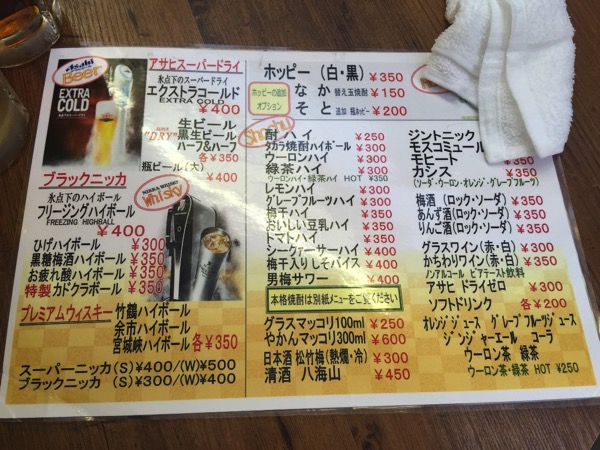 Asahi
Beer
EXTRA
COLD
アサヒスーパードライ
氷点下のスーパードライ
エクストラコールド
EXTRA COLD
¥400
生ビール
"DRY" 黒生ビール
ハーフ&ハーフ
各¥350
瓶ビール(大) ¥400
ブラックニッカ
氷点下のハイボール
フリージングハイボール
FREEZING HIGHBALL
¥400
NIKKA WHISKY
Whisky
ひげハイボール ¥300
黒糖梅酒ハイボール ¥300
お疲れ酸ハイボール ¥300
特製カドクラボール ¥350
プレミアムウィスキー
竹鶴ハイボール
余市ハイボール
宮城峡ハイボール 各¥350
スーパーニッカ (S)¥400/(W)¥500
ブラックニッカ (S)¥300/(W)¥400
ホッピー (白・黒) ¥350
ホッピーの追加オプション
なか 替え玉焼酎 ¥150
そと 追加 瓶ホッピー ¥200
Sho-chu
酎ハイ ¥250
タカラ焼酎ハイボール ¥300
ウーロンハイ ¥300
緑茶ハイ ¥300
ウーロンハイ・緑茶ハイ HOT ¥350
レモンハイ ¥300
グレープフルーツハイ ¥300
梅干ハイ ¥350
おいしい豆乳ハイ ¥350
トマトハイ ¥350
シークヮーサーハイ ¥400
梅干入りしそバイス ¥400
男梅サワー ¥400
本格焼酎は別紙メニューをご覧ください
グラスマッコリ100ml ¥250
やかんマッコリ300ml ¥600
日本酒 松竹梅(熱燗・冷) ¥300
清酒 八海山 ¥450
ジントニック
モスコミュール
モヒート
カシス
(ソーダ・ウーロン・オレンジ・グレープフルーツ)
梅酒 (ロック・ソーダ) ¥350
あんず酒(ロック・ソーダ) ¥350
りんご酒(ロック・ソーダ) ¥350
グラスワイン(赤・白) ¥300
かちわりワイン(赤・白) ¥350
ノンアルコール ビアテースト飲料
アサヒ ドライゼロ ¥300
ソフトドリンク 各¥200
オレンジジュース グレープフルーツジュース
ジンジャーエール コーラ
ウーロン茶 緑茶
ウーロン茶・緑茶 HOT ¥250